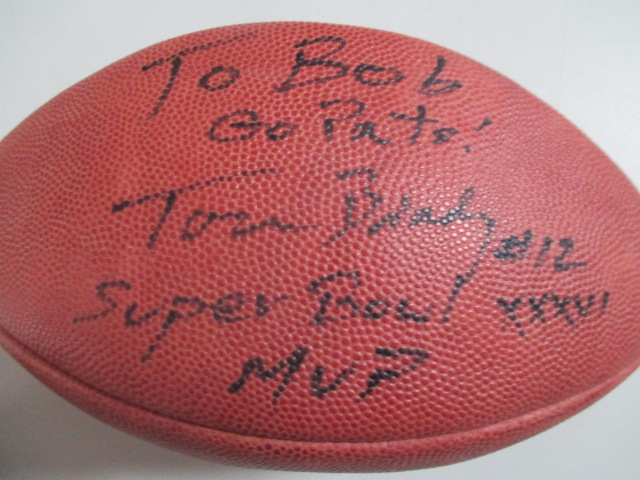 To Bob
Go Pats!
Tom Brady #12
Super Bowl XXXVI
MVP